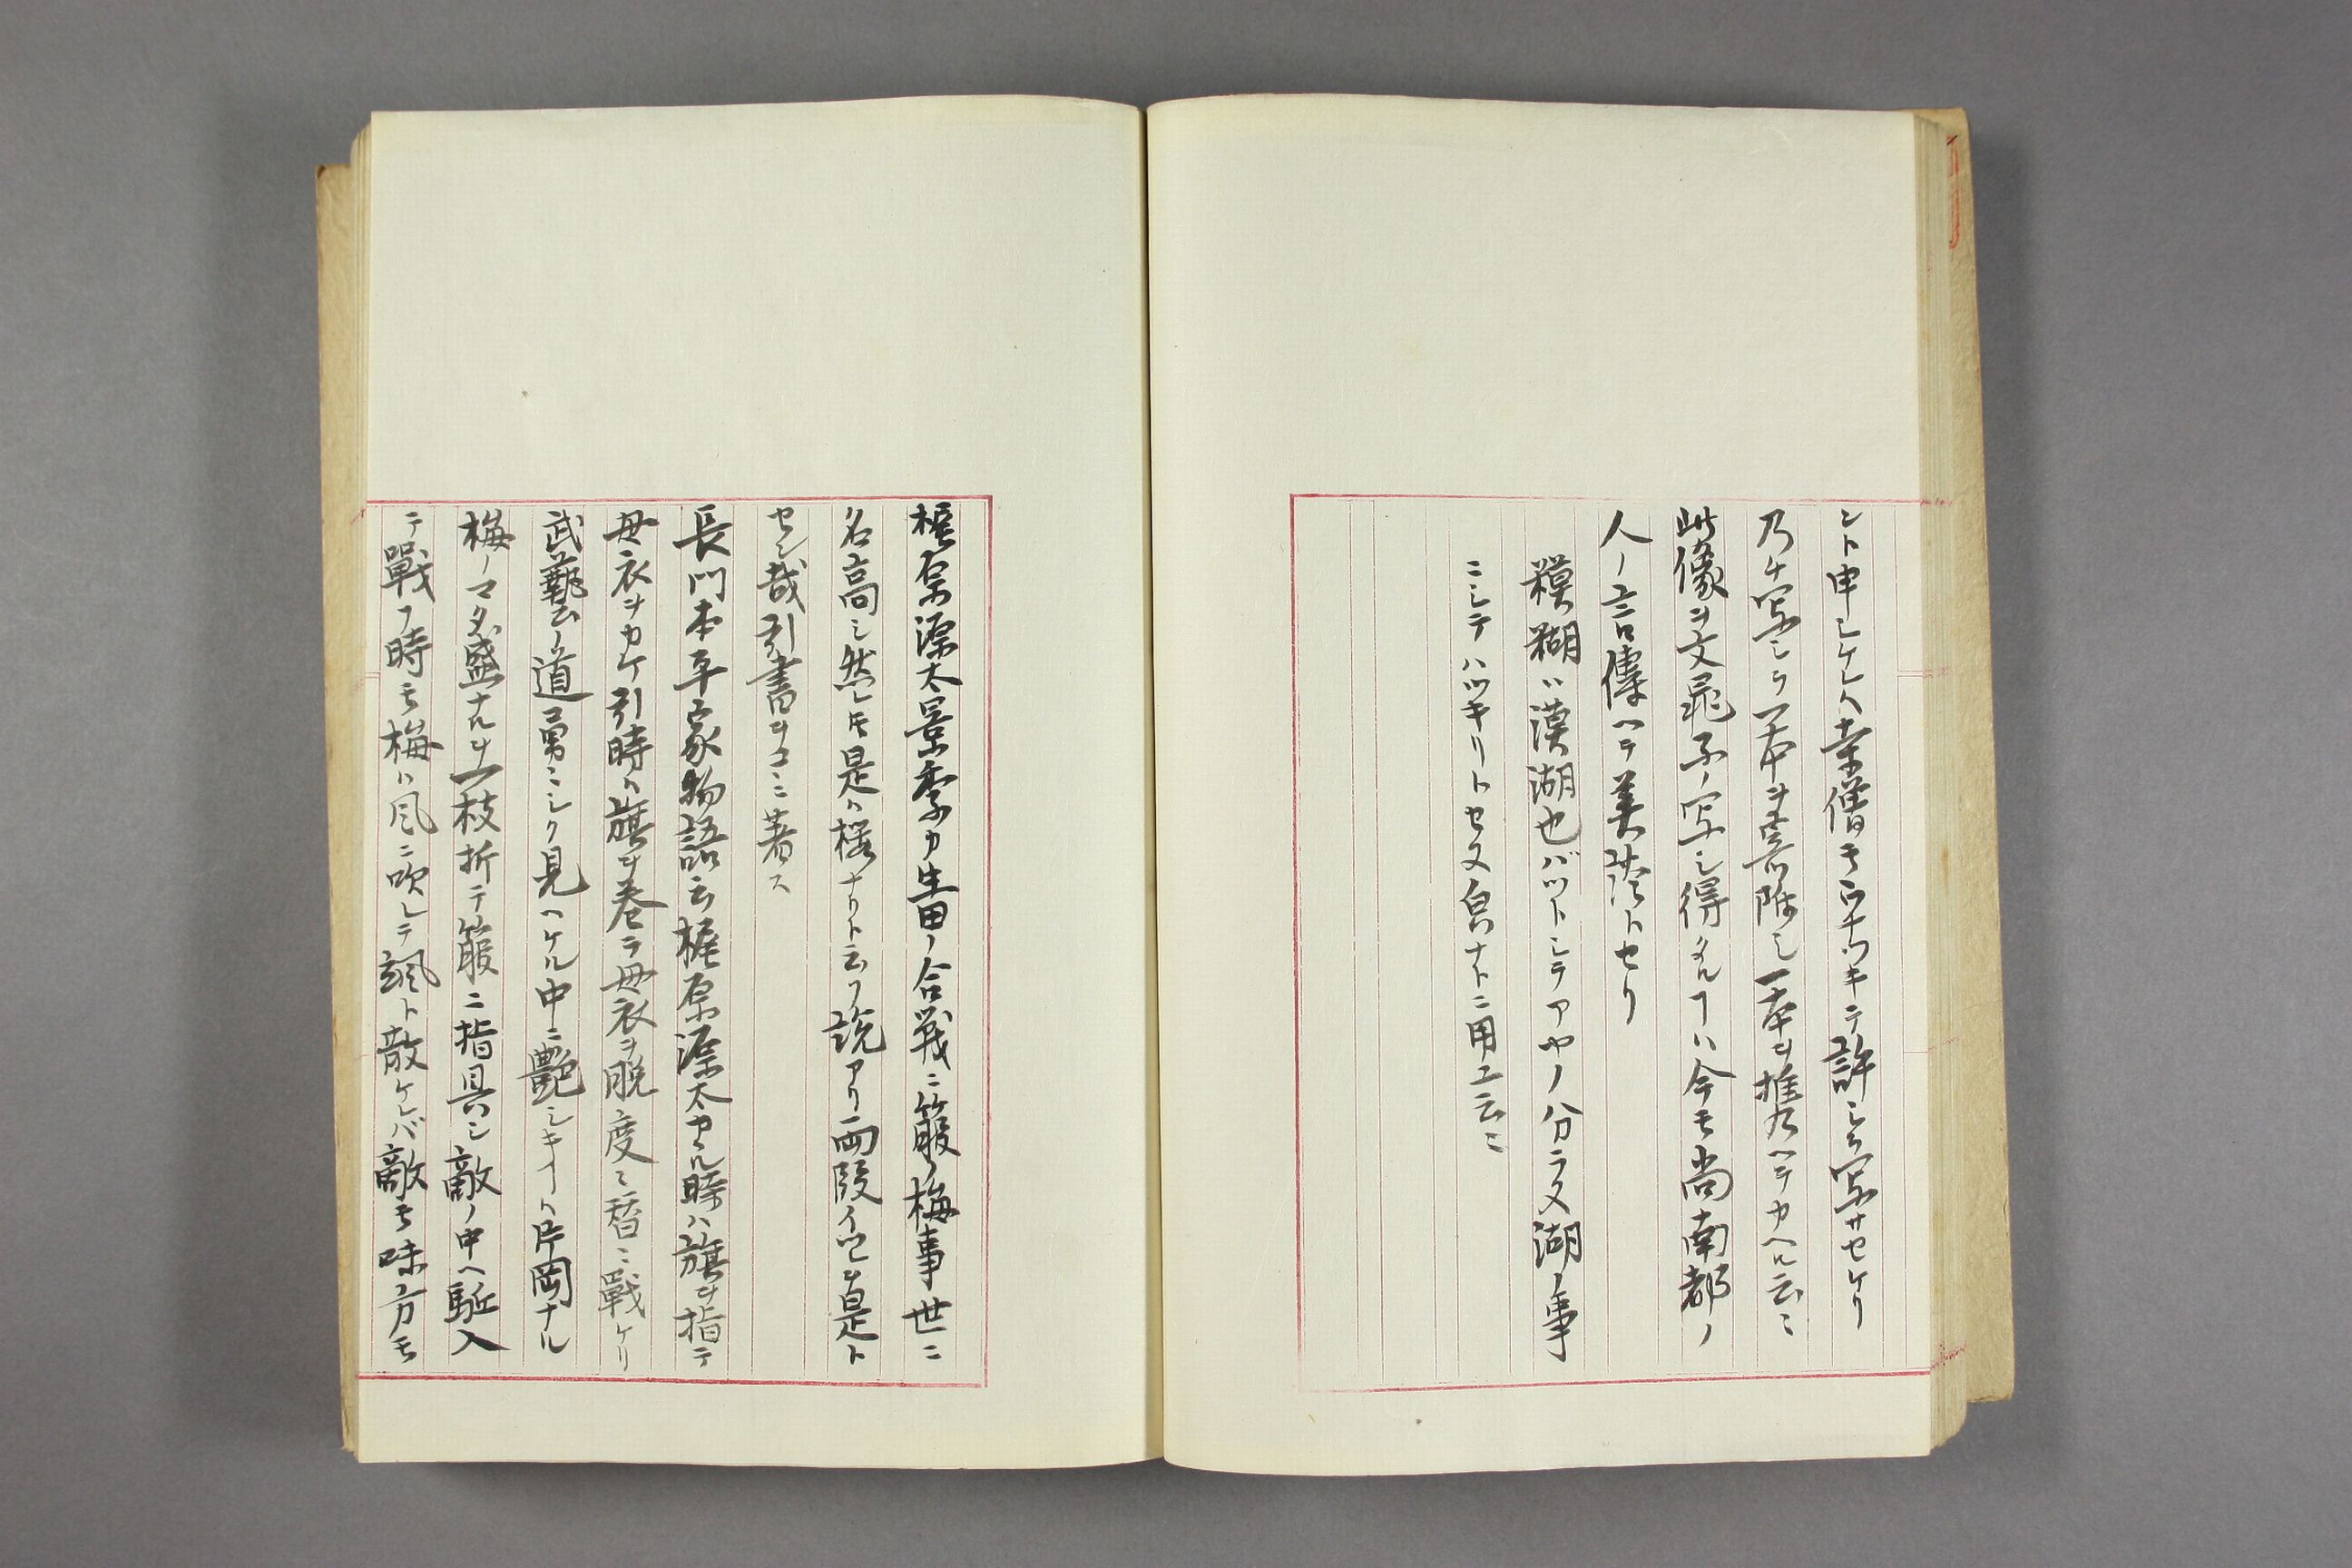 ント申シケレハ寺僧モウナツキテ許シテ写サセケリ
乃チ写シテ一本ヲ寄附シ一本ヲ携ヘテカヘル云々
此像ヲ文晁子ノ写シ得タルヿハ今モ尚南都ノ
人ノ言傳ヘテ美談トセリ
糢糊ハ漠湖也バットシテアヤノ分ラヌ湖ノ事
ニシテハッキリトセヌ㒵ナトニ用ユ云々
梶原源太景季カ生田ノ合戦ニ箙ノ梅事世ニ
名高シ然レ𪜈是ハ桜ナリト云フ説アリ両段イツレヲ是ト
セン哉引書ヲコヽニ著ス
長門本平家物語云梶原源太カヽル時ハ旗ヲ指テ
母衣ヲカケ引時ハ旗ヲ巻テ母衣ヲ脱度々替ニ戰ケリ
武藝ノ道勇ミシク見ヘケル中ニ艶シキイハ片岡ナル
梅ノマタ盛ナルヲ一枝折テ箙ニ指具シ敵ノ中ヘ駈入
テ戰フ時モ梅ハ风ニ吹レテ颯ト散ケレバ敵モ味方モ